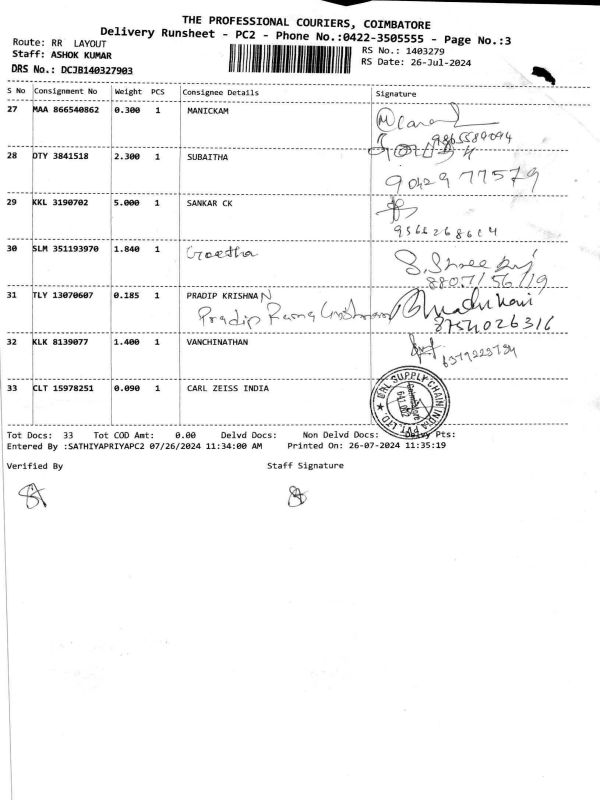 THE PROFESSIONAL COURIERS, COIMBATORE
Delivery Runsheet - PC2 - Phone No.:0422-3505555 - Page No.:3
Route: RR LAYOUT
RS No.: 1403279
Staff: ASHOK KUMAR
RS Date: 26-Jul-2024
DRS No.: DCJB140327903
S No Consignment No Weight PCS Consignee Details Signature
27 MAA 866540862 0.300 1 MANICKAM
9865589094
28 DTY 3841518 2.300 1 SUBAITHA
9042977579
29 KKL 3190702 5.000 1 SANKAR CK
30 SLM 351193970 1.840 1 Geetha
31 TLY 13070607 0.185 1 PRADIP KRISHNAN
Pradip
8754026316
32 KLK 8139077 1.400 1 VANCHINATHAN
33 CLT 15978251 0.090 1 CARL ZEISS INDIA
SUPPLY CHAIN INDIA PVT. LTD.
Coimbatore
Tot Docs: 33 Tot COD Amt: 0.00 Delvd Docs: Non Delvd Docs: Delvy Pts:
Entered By :SATHIYAPRIYAPC2 07/26/2024 11:34:00 AM Printed On: 26-07-2024 11:35:19
Verified By Staff Signature